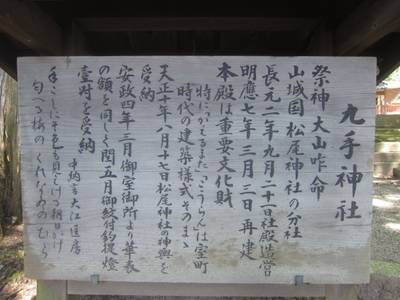 九手神社
祭神 大山咋命
山城国 松尾神社の分社
長元二年九月二十一日社殿造営
明應七年三月三日再建
本殿は重要文化財
特にかえるまた、こうらんは室町
時代の建築様式そのまゝ
天正十年八月十七日松尾神社の神輿を
受納
安政四年三月御室御所より華表
の額を同じく閏五月御紋付釣提燈
壹對を受納
中納言大江匡房